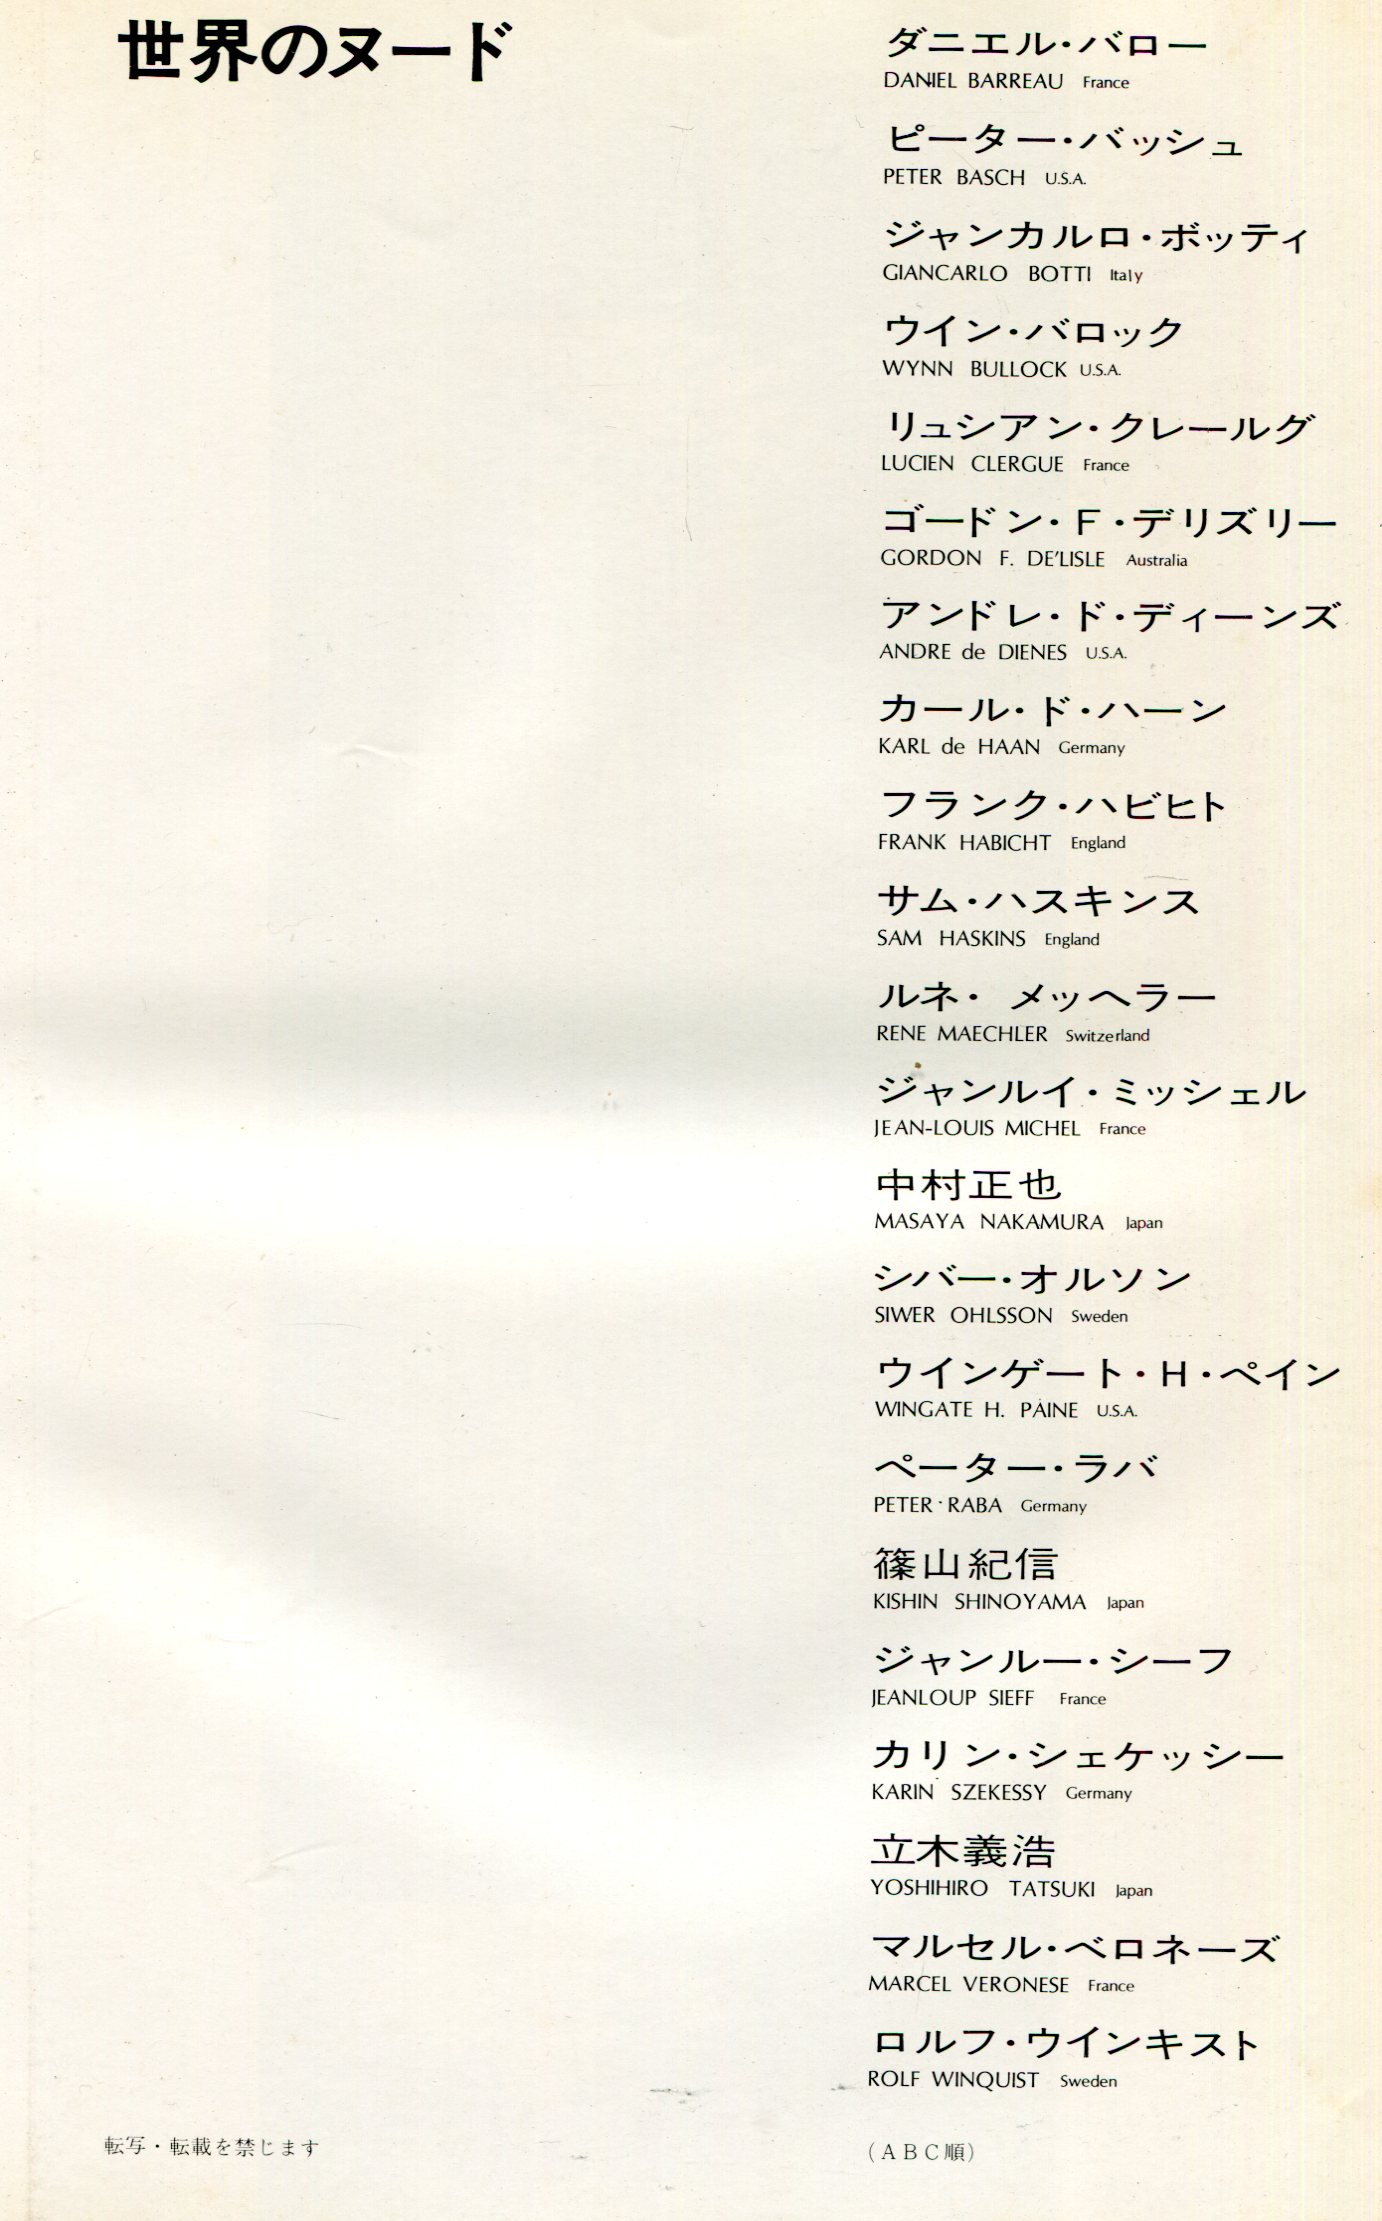 世界のヌード
ダニエル・バロー
DANIEL BARREAU France
ピーター・バッシュ
PETER BASCH U.S.A.
ジャンカルロ・ボッティ
GIANCARLO BOTTI Italy
ウイン・バロック
WYNN BULLOCK U.S.A.
リュシアン・クレールグ
LUCIEN CLERGUE France
ゴードン・F・デリズリー
GORDON F. DE'LISLE Australia
アンドレ・ド・ディーンズ
ANDRE de DIENES U.S.A.
カール・ド・ハーン
KARL de HAAN Germany
フランク・ハビヒト
FRANK HABICHT England
サム・ハスキンス
SAM HASKINS England
ルネ・メッヘラー
RENE MAECHLER Switzerland
ジャンルイ・ミッシェル
JEAN-LOUIS MICHEL France
中村正也
MASAYA NAKAMURA Japan
シバー・オルソン
SIWER OHLSSON Sweden
ウインゲート・H・ペイン
WINGATE H. PAINE U.S.A.
ペーター・ラバ
PETER RABA Germany
篠山紀信
KISHIN SHINOYAMA Japan
ジャンルー・シーフ
JEANLOUP SIEFF France
カリン・シェケッシー
KARIN SZEKESSY Germany
立木義浩
YOSHIHIRO TATSUKI Japan
マルセル・ベロネーズ
MARCEL VERONESE France
ロルフ・ウインキスト
ROLF WINQUIST Sweden
転写・転載を禁じます
(ABC順)